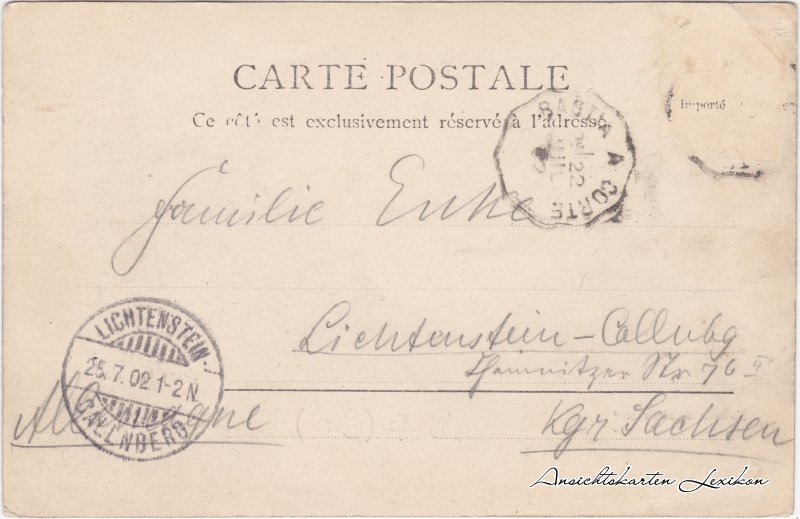 CARTE POSTALE
Ce côté est exclusivement réservé à l'adresse
Importé
BASTIA A CORTE
22
Familie Enke
Lichtenstein-Callnbg
Chemnitzer Str 76 II
LICHTENSTEIN-
25.7.02.1-2N.
CALLNBERG
Allemagne
Kgr. Sachsen
Ansichtskarten Lexikon